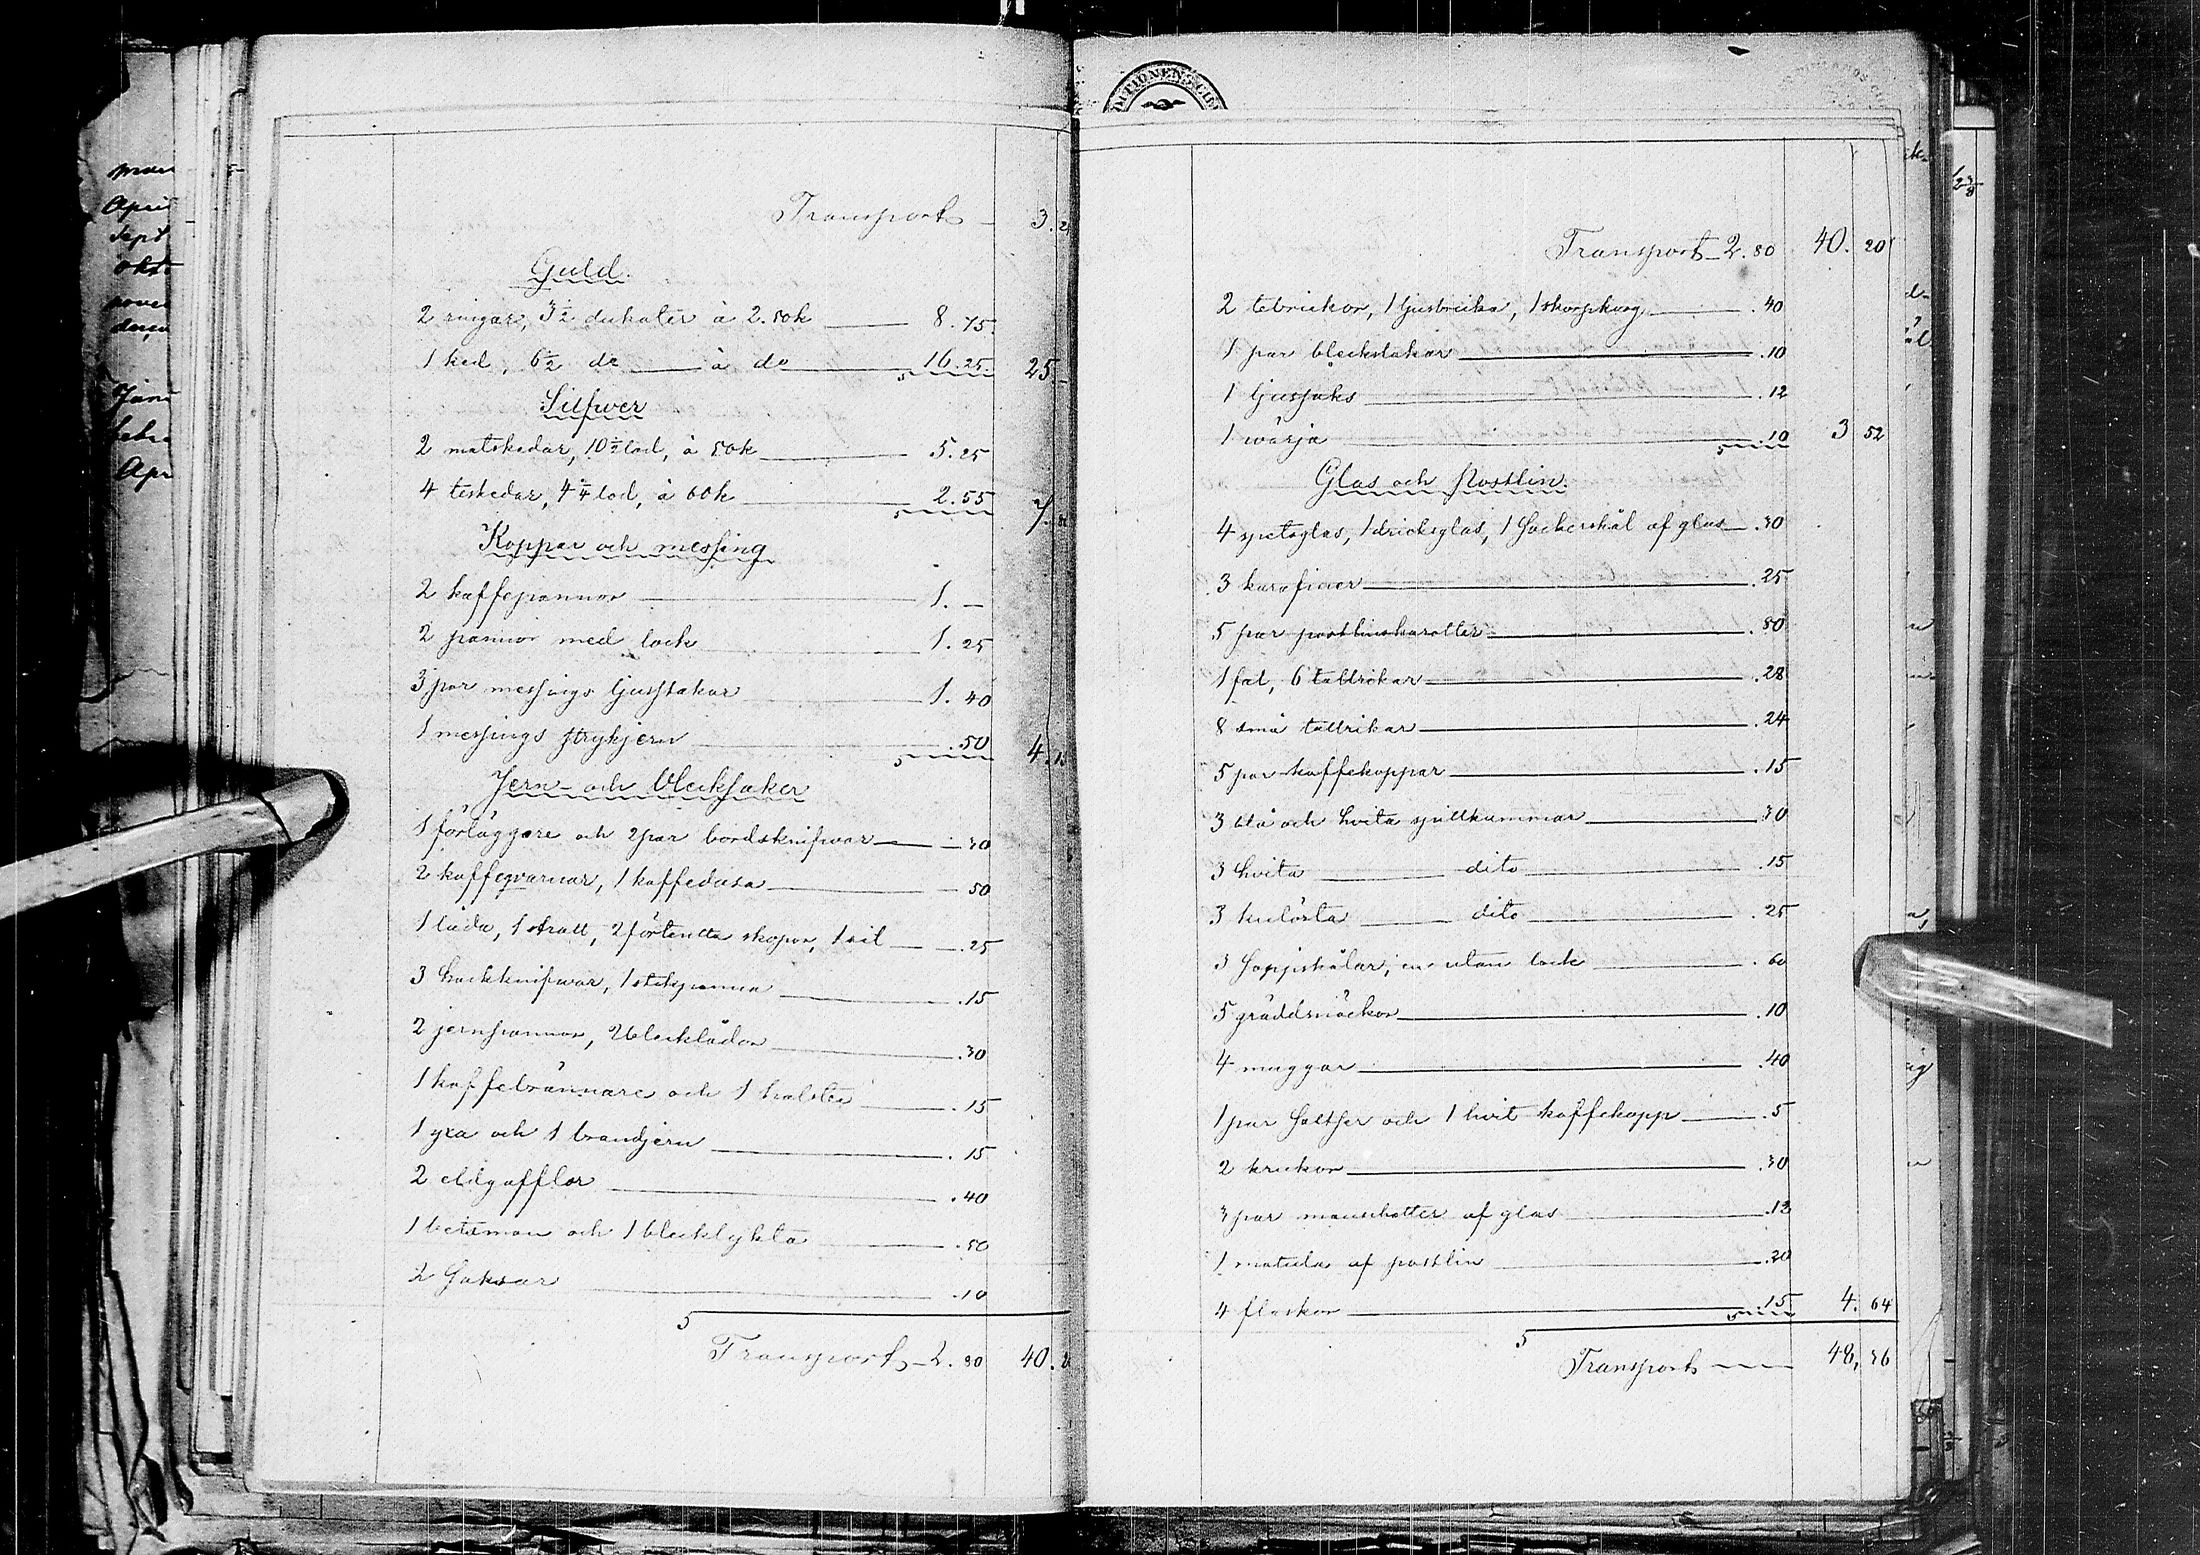 Transport 3.
Guld.
2 ringar, 3½ dukater à 2.50k 8.75.
1 ked, 6½ do à do 16.25. 25 –
Silfwer
2 matskedar, 10½ lod, à 50k 5.25
4 teskedar, 4¼ lod, à 60k 2.55 7.
Koppar och messing
2 kaffepannor 1. –
2 pannor med lock 1.25
3 par messings ljusstakar 1.40
1 messings strykjern .50 4.15
Jern- och blecksaker
1 förläggare och 2 par bordsknifwar – 30
2 kaffeqvarnar, 1 kaffedosa – 50
1 låda, 1 tratt, 2 förtenta skopor, 1 sil .25
3 hackknifwar, 1 stekpanna .15
2 jernpannor, 2 blecklådor .30
1 kaffebrännare och 1 halster .15
1 yxa och 1 brandjern .15
2 eldgafflor .40
1 betsman och 1 blecklykta .50
2 Saksar .10
5
Transport 2.80 40.
DITIONENS
Transport 2.80 40.20
2 tebrickor, 1 ljusbricka, 1 skorpkorg .40
1 par bleckstakar .10
1 ljussaks .12
1 wärja .10 3 52
Glas och Postlin.
4 spetsglas, 1 dricksglas, 1 Sockerskål af glas .30
3 karafiner .25
5 par postlinskarotter .80
1 fat, 6 tallrikar .28
8 små tallrikar .24
5 par kaffekoppar .15
3 blå och hvita spillkummar .30
3 hvita dito .15
3 kulörta dito .25
3 Soppskålar, en utan lock .60
5 gräddsnäckor .10
4 muggar .40
1 par Saltser och 1 hvit kaffekopp .5
2 krukor .30
3 par manschetter af glas .12
1 matula af postlin .20
4 flaskor .15 4.64
5
Transport 48,36